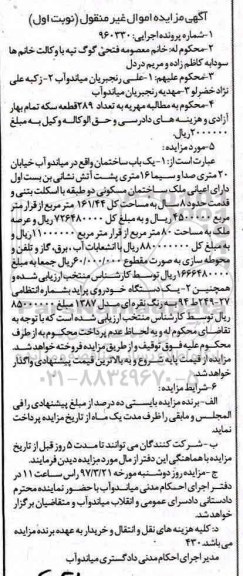 آگهی مزایده اموال غیر منقول (نوبت اول)
۱-شماره پرونده اجرایی: ۹۶۰۳۳۰
۲-محکوم له: خانم معصومه فتحی گوگ تپه با وکالت خانم ها
سودابه کاظم زاده و مریم دردل
۳-محکوم علیهم: ۱-علی رنجبریان میاندوآب ۲-زکیه علی
نژاد خضرلو ۳-مهدیه رنجبریان میاندوآب
۴-محکوم به مطالبه مهریه به تعداد ۲۸۹ قطعه سکه تمام بهار
آزادی و هزینه های دادرسی و حق الوکاله وکیل به مبلغ
ریال
۵-مورد مزایده:
عبارت است از: ۱-یک باب ساختمان واقع در میاندوآب خیابان
۲۰ متری صدا و سیما ۱۶ متری پشت آتش نشانی بن بست اول
دارای اعیانی ملک ساختمان مسکونی دو طبقه با اسکلت بتنی و
قدمت حدود ۸ سال به مساحت کل ۱۶۱/۴۴ متر مربع از قرار متر
مربع ۴۵۰۰۰۰۰ ریال و به مبلغ کل ۷۲۶۴۸۰۰۰۰ ریال و عرصه
ملک به مساحت ۸۰ متر مربع از قرار متر مربع ۱۱۰۰۰۰۰۰ ریال و
به مبلغ کل ۸۸۰۰۰۰۰۰۰ ریال با انشعابات آب، برق، گاز و تلفن و
محوطه سازی به صورت مقطوع ۶۰/۰۰۰/۰۰۰ ریال جمعا به مبلغ
۱۶۶۶۴۸۰۰۰۰ ریال توسط کارشناس منتخب ارزیابی شده و
همچنین ۲-یک دستگاه خودروی پراید بشماره انتظامی
۲۷-۲۴۹ ط ۹۴ به رنگ نقره ای مدل ۱۳۸۷ مبلغ ۸۵۰۰۰۰۰۰
ریال توسط کارشناس منتخب ارزیابی شده است که با توجه به
تقاضای محکوم له و به لحاظ عدم پرداخت محکوم به از طرف
محکوم علیه فوق توقیف و از طریق مزایده فروخته خواهد شد.
مزایده از قیمت پایه شروع و به بالاترین قیمت پیشنهادی واگذار
خواهد شد.
۶-شرایط مزایده:
الف-برنده مزایده بایستی ده درصد از مبلغ پیشنهادی را فی
المجلس و مابقی را ظرف مدت یک ماه از تاریخ مزایده پرداخت
نماید
ب-شرکت کنندگان می توانند تا مدت ۵ روز قبل از تاریخ
مزایده با هماهنگی این دفتر از مال مورد مزایده دیدن فرمایند.
ج-مزایده روز دوشنبه مورخه ۹۷/۲/۳۱ راس ساعت ۱۱ در
دفتر اجرای احکام مدنی میاندوآب با حضور نماینده محترم
دادستانی دادسرای عمومی و انقلاب میاندوآب و متقاضیان برگزار
خواهد شد.
د: کلیه هزینه های نقل و انتقال و خریدار به عهده برنده مزایده
می باشد. ۴۳۰
مدیر اجرای احکام مدنی دادگستری میاندوآب
۰۲۱-۸۸۳۴۹۶۷۰